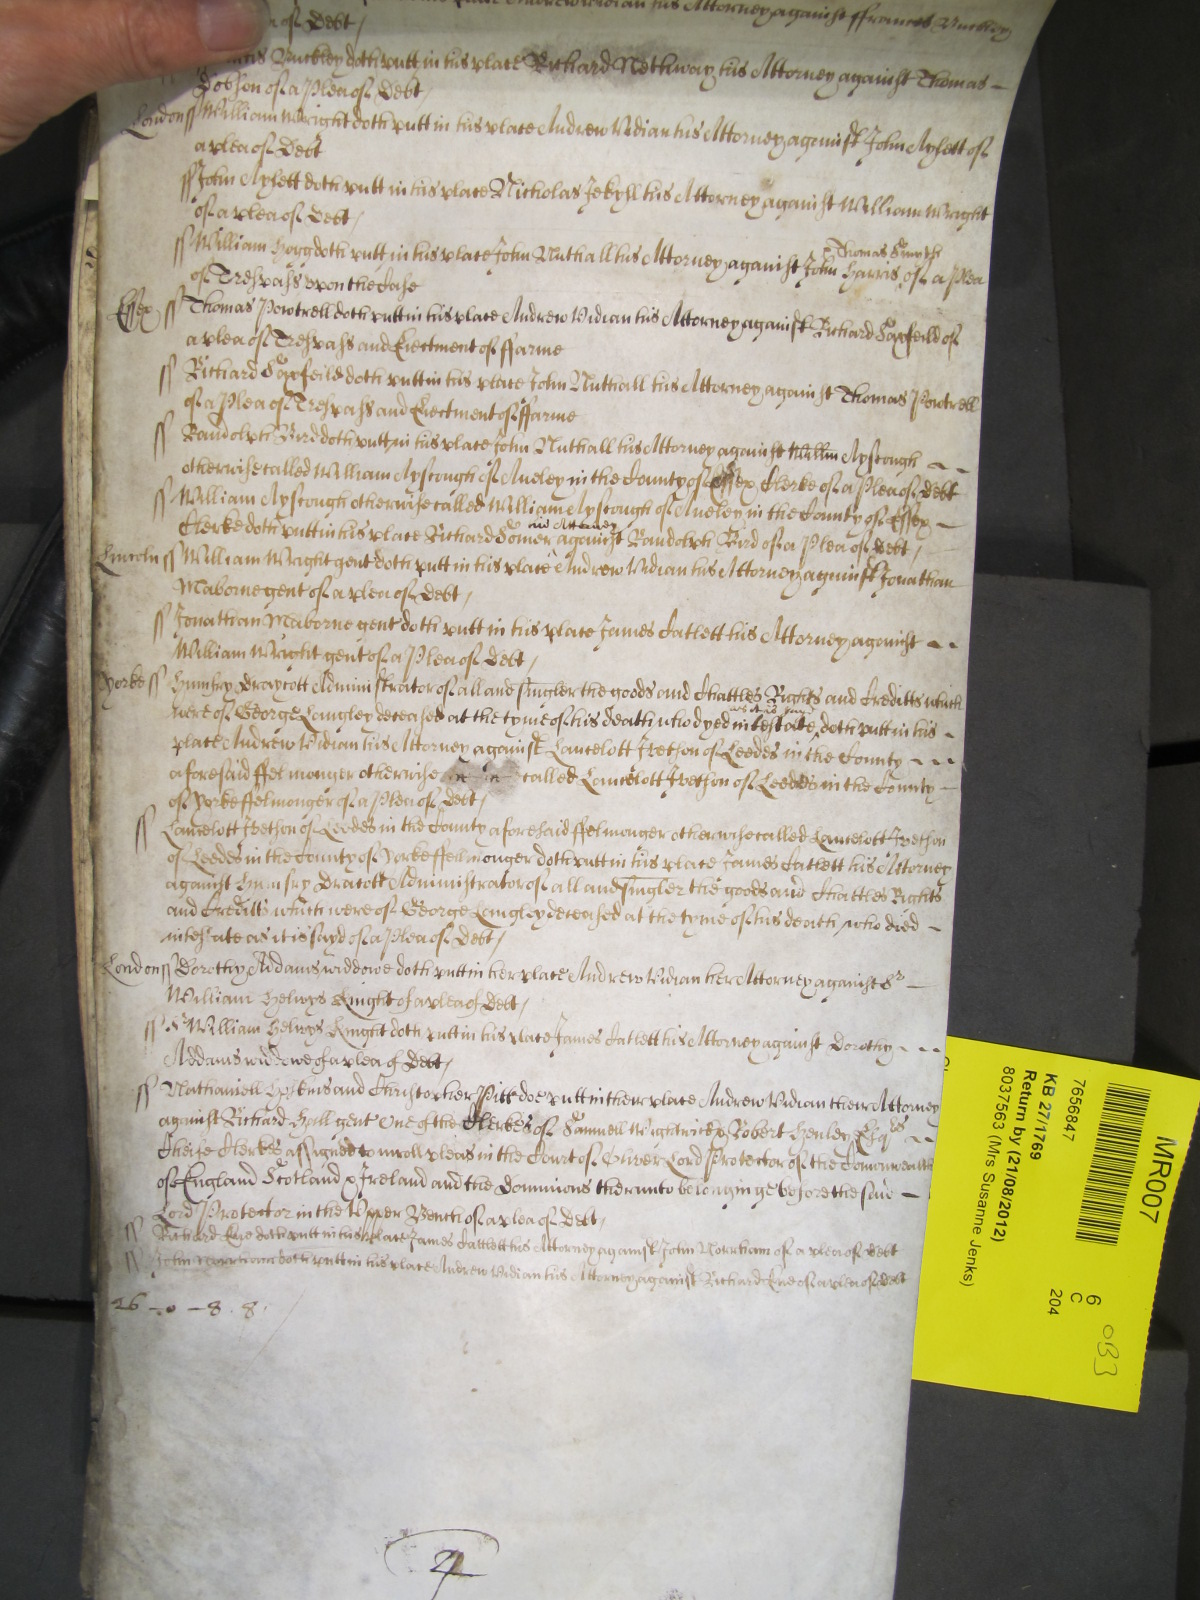 his Attorney against ffrances Buckley
a of Debt
Buckley doth putt in his place Richard Nethway his Attorney against Thomas
Dobson of a Plea of Debt
London ss William Wright doth putt in his place Andrew Vidian his Attorney against John Aylett of
a plea of Debt
ss John Aylett doth putt in his place Nicholas Jekyll his Attorney against William Wright
of a plea of Debt
Thomas Smythe
ss William Hogg doth putt in his place John Nuthall his Attorney against John Harris of a Plea
of Trespass upon the Case
Essex ss Thomas Powtrell doth putt in his place Andrew Vidian his Attorney against Richard Saxfeild of
a plea of Trespass and Eiectment of ffarme
ss Richard Saxfeild doth putt in his place John Nuthall his Attorney against Thomas Powtrell
of a Plea of Trespass and Eiectment of ffarme
ss Randolph Bird doth putt in his place John Nuthall his Attorney against Willm Ayscough
otherwise called William Ayscough of Aveley in the County of Essex Clerke of a Plea of Debt
ss William Ayscough otherwise called William Ayscough of Aveley in the County of Essex
his Attorney
Clerke doth putt in his place Richard Somer against Randolph Bird of a Plea of Debt
Lincoln ss William Wright gent doth putt in his place Andrew Vidian his Attorney against Jonathan
Maborne gent of a plea of Debt
ss Jonathan Maborne gent doth putt in his place James Catlett his Attorney against
William Wright gent of a Plea of Debt
Yorke ss Humfry Draycott Administrator of all and singler the goods and Chattles Rights and Creditts which
as it is sayd
were of George Langley deceased at the tyme of his death who dyed intestate doth putt in his
place Andrew Vidian his Attorney against Lancelott Iretson of Leedes in the County
aforesaid ffelmonger otherwise called Lancelott Iretson of Leedes in the County
of Yorke ffelmonger of a Plea of Debt
ss Lancelott Iretson of Leedes in the County aforesaid ffelmonger otherwise called Lancelott Iretson
of Leedes in the County of Yorke ffelmonger doth putt in his place James Catlett his Attorney
against Humfry Dracott Administrator of all and singler the goods and Chattles Rights
and Creditts which were of George Langley deceased at the tyme of his death who died
intestate as it is sayd of a Plea of Debt
London ss Dorothy Addams widdowe doth putt in her place Andrew Vidian her Attorney against Sr
William Helwys Knight of a plea of Debt
ss Sr William Helwys Knight doth putt in his place James Catlett his Attorney against Dorothy
Addams widdowe of a plea of Debt
ss Nathaniell Hopkins and Christopher Pitt doe putt in their place Andrew Vidian their Attorney
against Richard Hall gent One of the Clerkes of Samuell Wightwick & Robert Henley Esqrs
Cheife Clerkes assigned to inroll pleas in the Court of Oliver Lord Protector of the Comonwealth
of England Scotland & Ireland and the Dominions therunto belonginge before the said
Lord Protector in the Upper Bench of a plea of Debt
ss Richard Kne doth putt in his place James Catlett his Attorney against John Norrham of a plea of debt
ss John Norrham doth putt in his place Andrew Vidian his Attorney against Richard Kne of a plea of debt
26 - 0 - 8 . 8
4
MR007
7656847
KB 27/1769
Return by (21/08/2012)
8037563 (Mrs Susanne Jenks)
6
C
204
OB3